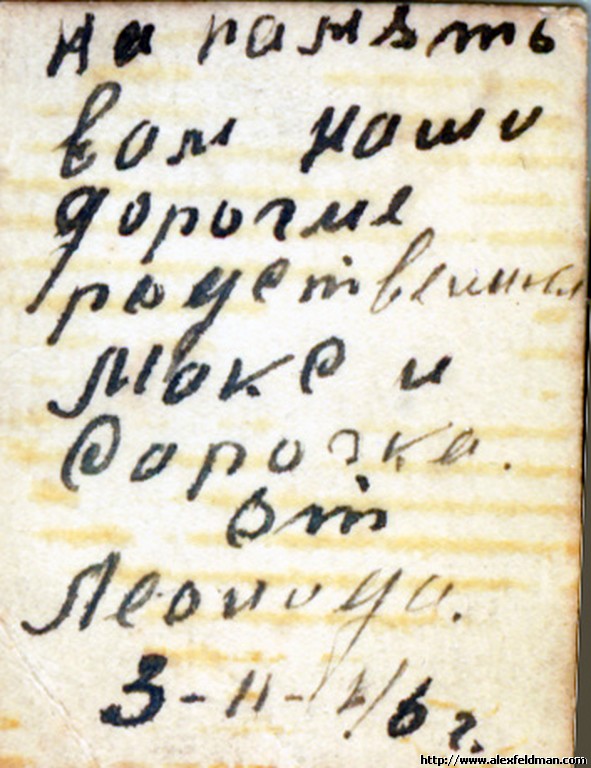 на памѣть
вам наши
дорогие
родственики
Макс и
Сарочка.
от
Леонида.
3-II-46 г.
http://www.alexfeldman.com